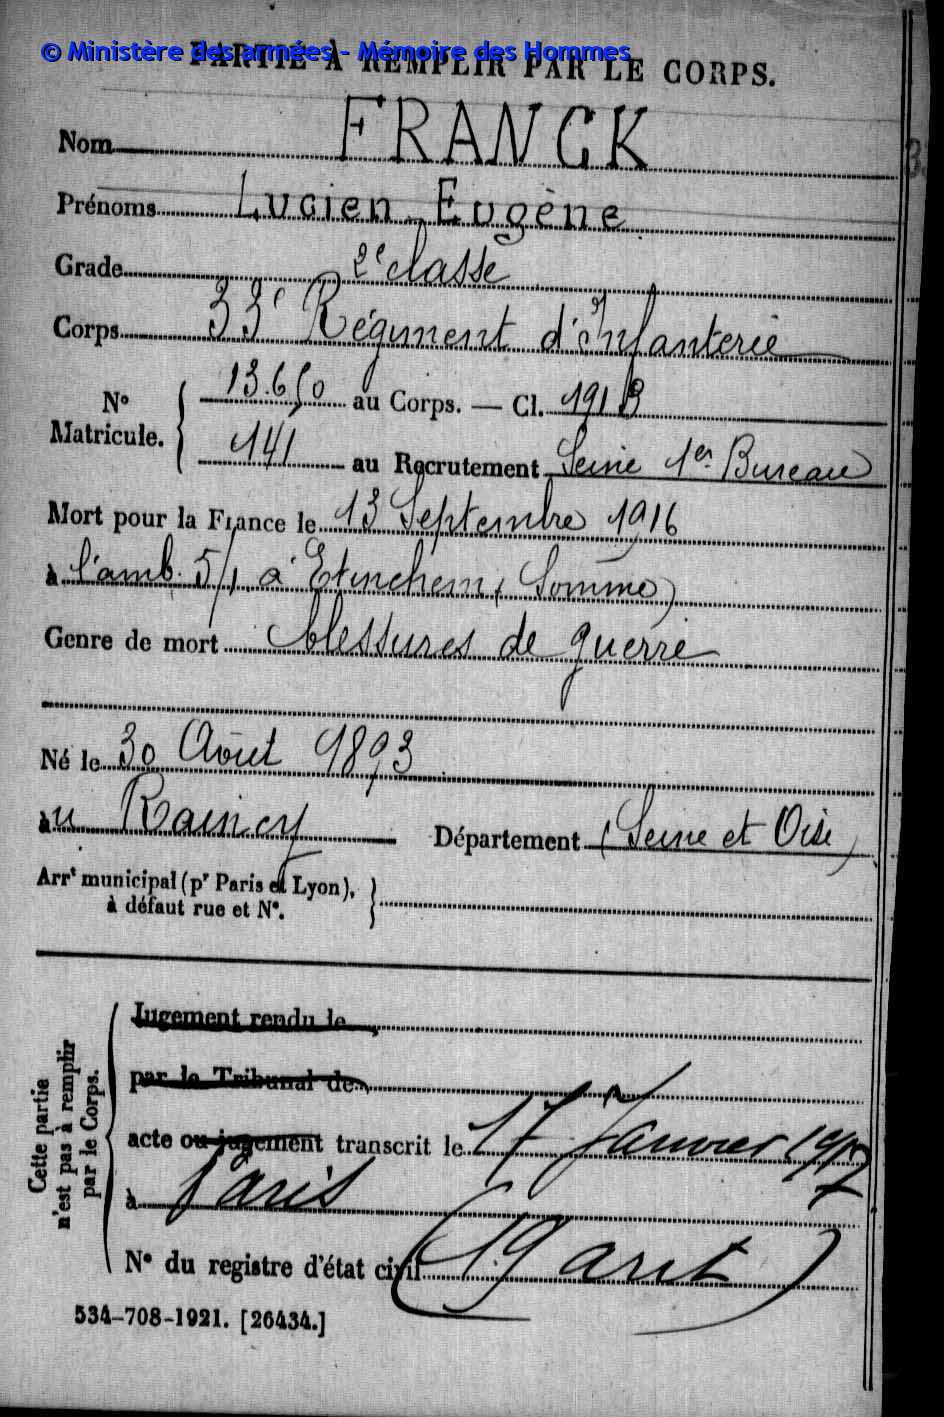 © Ministère des armées - Mémoire des Hommes
PARTIE À REMPLIR PAR LE CORPS.
Nom FRANCK
Prénoms Lucien Eugène
Grade 2e classe
Corps 33e Régiment d'Infanterie
No Matricule. 13.650 au Corps. — Cl. 1913
141 au Recrutement Seine 1er Bureau
Mort pour la France le 13 Septembre 1916
à l'amb. 5/1 à Etinehem (Somme)
Genre de mort blessures de guerre
Né le 30 Août 1893
au Raincy Département (Seine et Oise)
Arrt municipal (pr Paris et Lyon),
à défaut rue et No.
Cette partie
n'est pas à remplir
par le Corps.
Jugement rendu le
par le Tribunal de
acte ou jugement transcrit le 17 Janvier 1917
à Paris
No du registre d'état civil (19 arrt)
534-708-1921. [26434.]